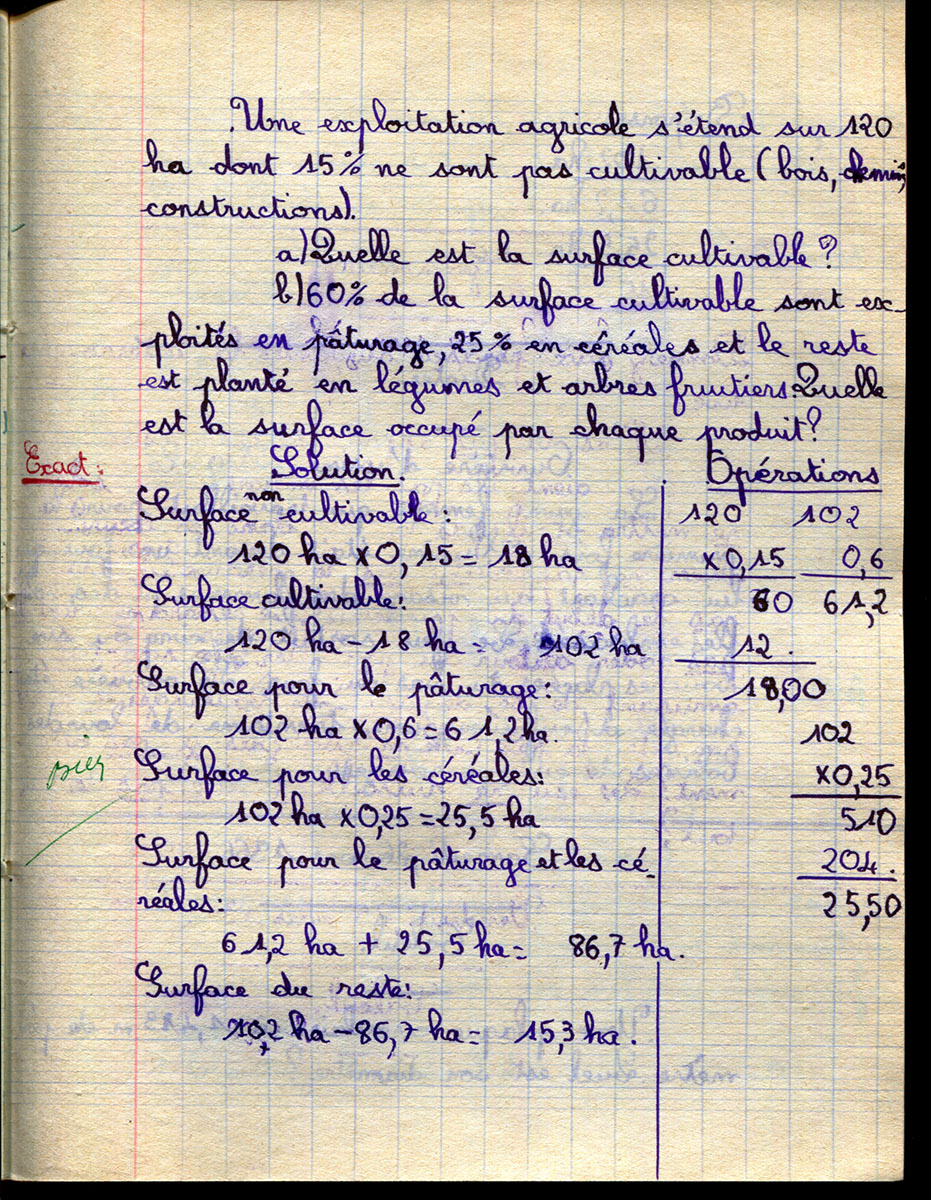 Une exploitation agricole s'étend sur 120
ha dont 15% ne sont pas cultivable (bois, chemins,
constructions).
a) Quelle est la surface cultivable ?
b) 60% de la surface cultivable sont ex-
ploités en pâturage, 25% en céréales et le reste
est planté en légumes et arbres fruitiers. Quelle
est la surface occupé par chaque produit ?
Exact :
Solution.
Surface non cultivable :
120 ha x 0,15 = 18 ha
Surface cultivable :
120 ha - 18 ha = 102 ha
Surface pour le pâturage :
102 ha x 0,6 = 61,2 ha.
Surface pour les céréales :
102 ha x 0,25 = 25,5 ha
Surface pour le pâturage et les cé-
réales :
61,2 ha + 25,5 ha = 86,7 ha.
Surface du reste :
102 ha - 86,7 ha = 15,3 ha.
Opérations
120
x 0,15
60
12 .
18,00
102
0,6
61,2
102
x 0,25
510
204 .
25,50